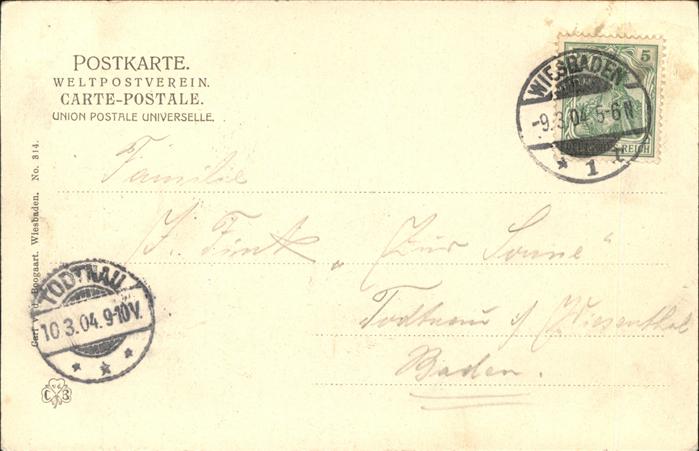 POSTKARTE.
WELTPOSTVEREIN.
CARTE-POSTALE.
UNION POSTALE UNIVERSELLE.
WIESBADEN
-9.3.04. 5-6 N
* 1 r
5
DEUTSCHES REICH
Familie
J. Fink „Zur Sonne“
Todtnau i/ Wiesenthal
Baden.
TODTNAU
10.3.04. 9-10V.
* * *
Boogaart. Wiesbaden. No. 314.